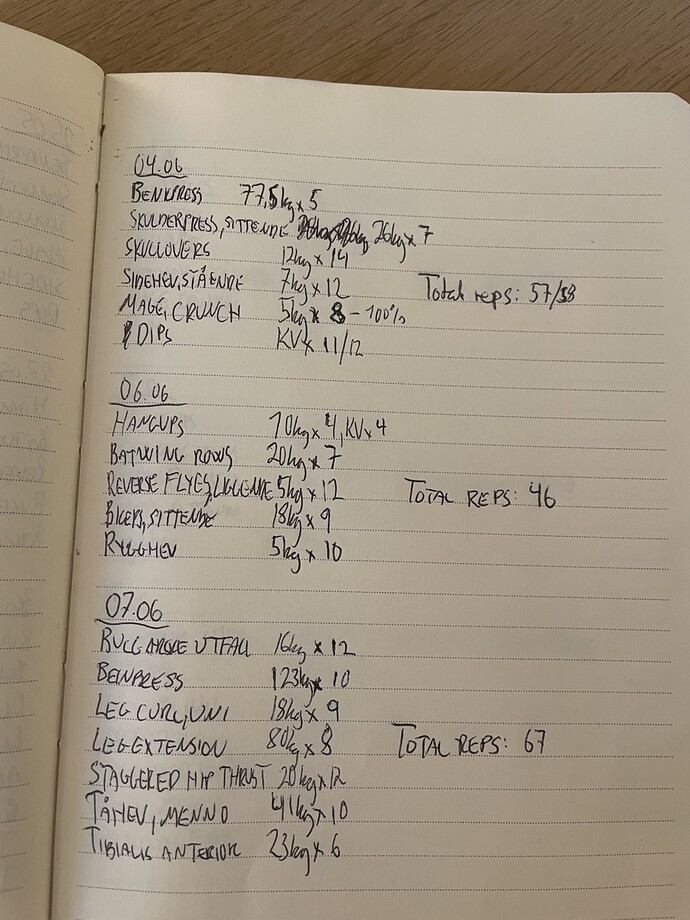 04.06
BENKPRESS 77,5kg x 5
SKULDERPRESS, SITTENDE 26kg x 7
SKULLOVERS 12kg x 14
SIDEHEV, STÅENDE 7kg x 12 Total reps: 57/58
MAGE, CRUNCH 5kg x 8 - 100%
DIPS KV x 11/12
06.06
HANGUPS 10kg x 4, KV x 4
BATWING ROWS 20kg x 7
REVERSE FLYES, LIGGENDE 5kg x 12 TOTAL REPS: 46
BICEPS, SITTENDE 18kg x 9
RYGGHEV 5kg x 10
07.06
BULGARSKE UTFALL 16kg x 12
BEINPRESS 123kg x 10
LEG CURL, UNI 18kg x 9
LEG EXTENSION 80kg x 8 TOTAL REPS: 67
STAGGERED HIP THRUST 20kg x 12
TÅHEV, MENNO 41kg x 10
TIBIALIS ANTERIOR 23kg x 6